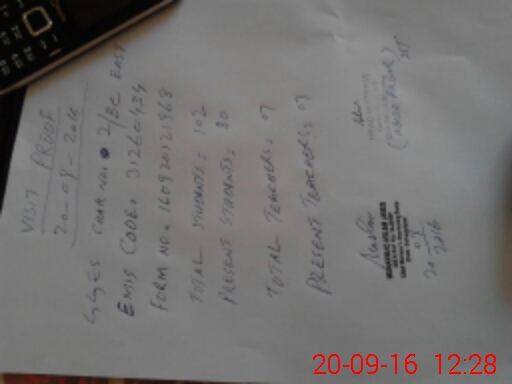 VISIT PROOF
20-09-2016
GGES CHAK NO. 2/BC EAST
EMIS CODE. 31260484
FORM NO. 160920121968
TOTAL STUDENTS: 102
PRESENT STUDENTS: 80
TOTAL TEACHERS: 07
PRESENT TEACHERS: 07
20-09
2016
20-09-16 12:28